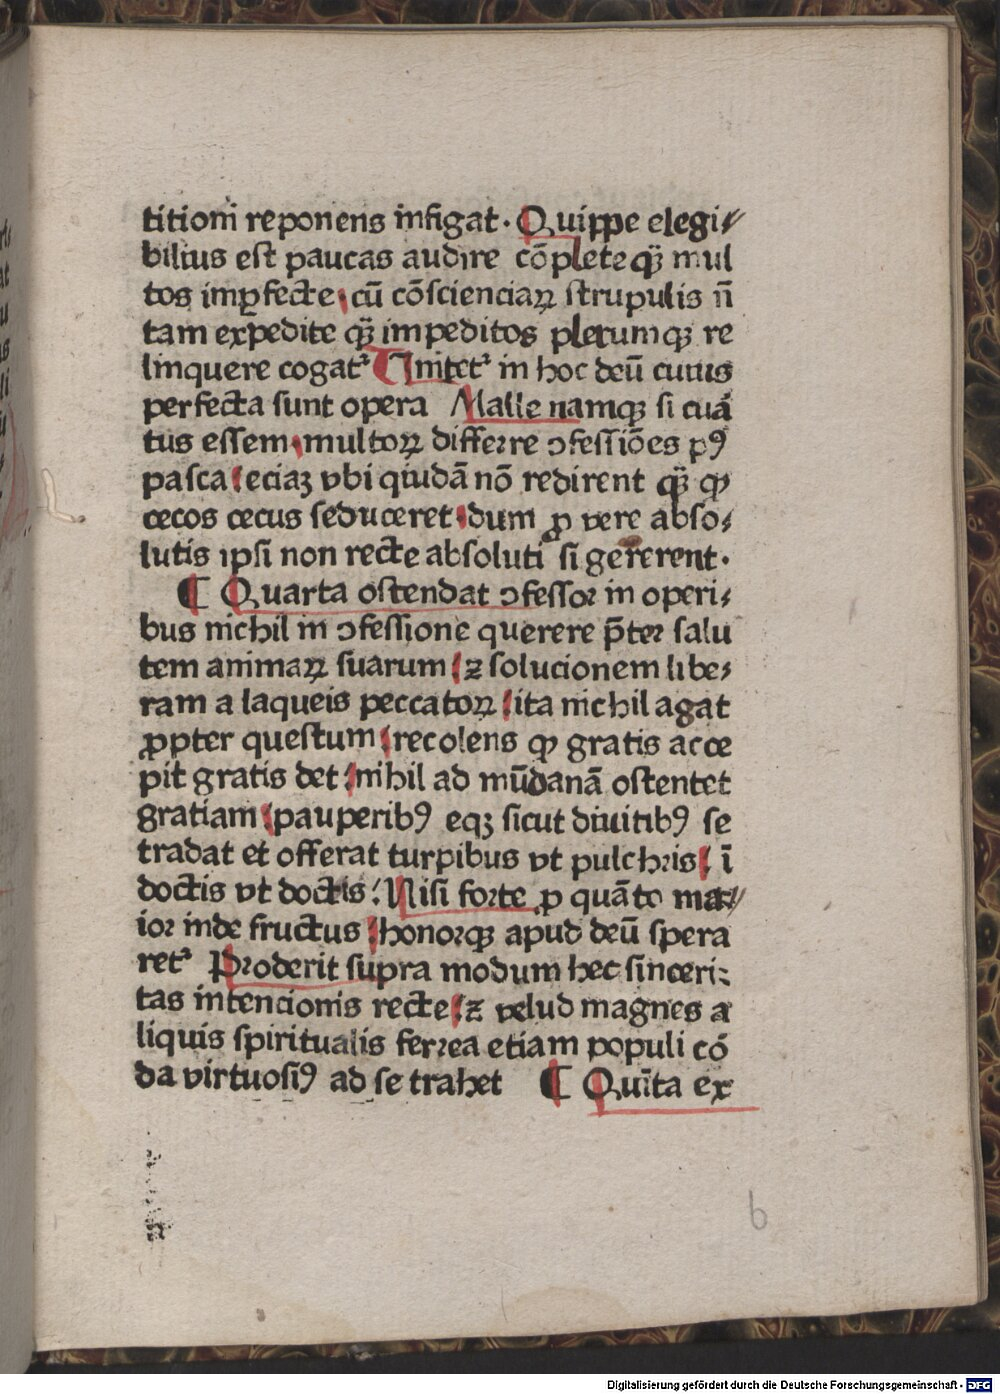 titioni reponens infigat. Quippe elegi⸗
bilius est paucas audire cōplete qꝫ̈ mul
tos imꝑfecte. cū cōscienciaꝝ strupulis n̄
tam expedite qꝫ̈ impeditos plerumqꝫ re
linquere cogatᷣ ⸿ Initetᷣ in hoc deū cuius
perfecta sunt opera Malle namqꝫ si cuā
tus essem. multoꝝ differre ↄfessiōes pꝰ
pasca: eciaꝫ vbi quidā nō redirent qꝫ̈ ꝙ
cecos cecus seduceret. dum ꝓ vere abso⸗
lutis ipsi non recte absoluti si gererent.
⸿ Quarta ostendat ↄfessor in operi⸗
bus nichil in ↄfessione querere p̄ter salu
tem animaꝝ suarum: ⁊ solucionem libe⸗
ram a laqueis peccatoꝝ: ita nichil agat
ꝓpter questum: recolens ꝙ gratis acce
pit gratis det: nihil ad mūdanā ostentet
gratiam: pauperibꝰ eqꝫ sicut diuitibꝰ se
tradat et offerat turpibus vt pulchris: ī
doctis vt doctis: Nisi forte ꝓ quāto ma⸗
ior inde fructus: honorqꝫ apud deū spera
retᷣ Proderit supra modum hec sinceri⸗
tas intencionis recte: ⁊ velud magnes a
liquis spiritualis ferrea etiam populi cō
da virtuosiꝰ ad se trahet ⸿ Quīta ex
b
Digitalisierung gefördert durch die Deutsche Forschungsgemeinschaft - DFG